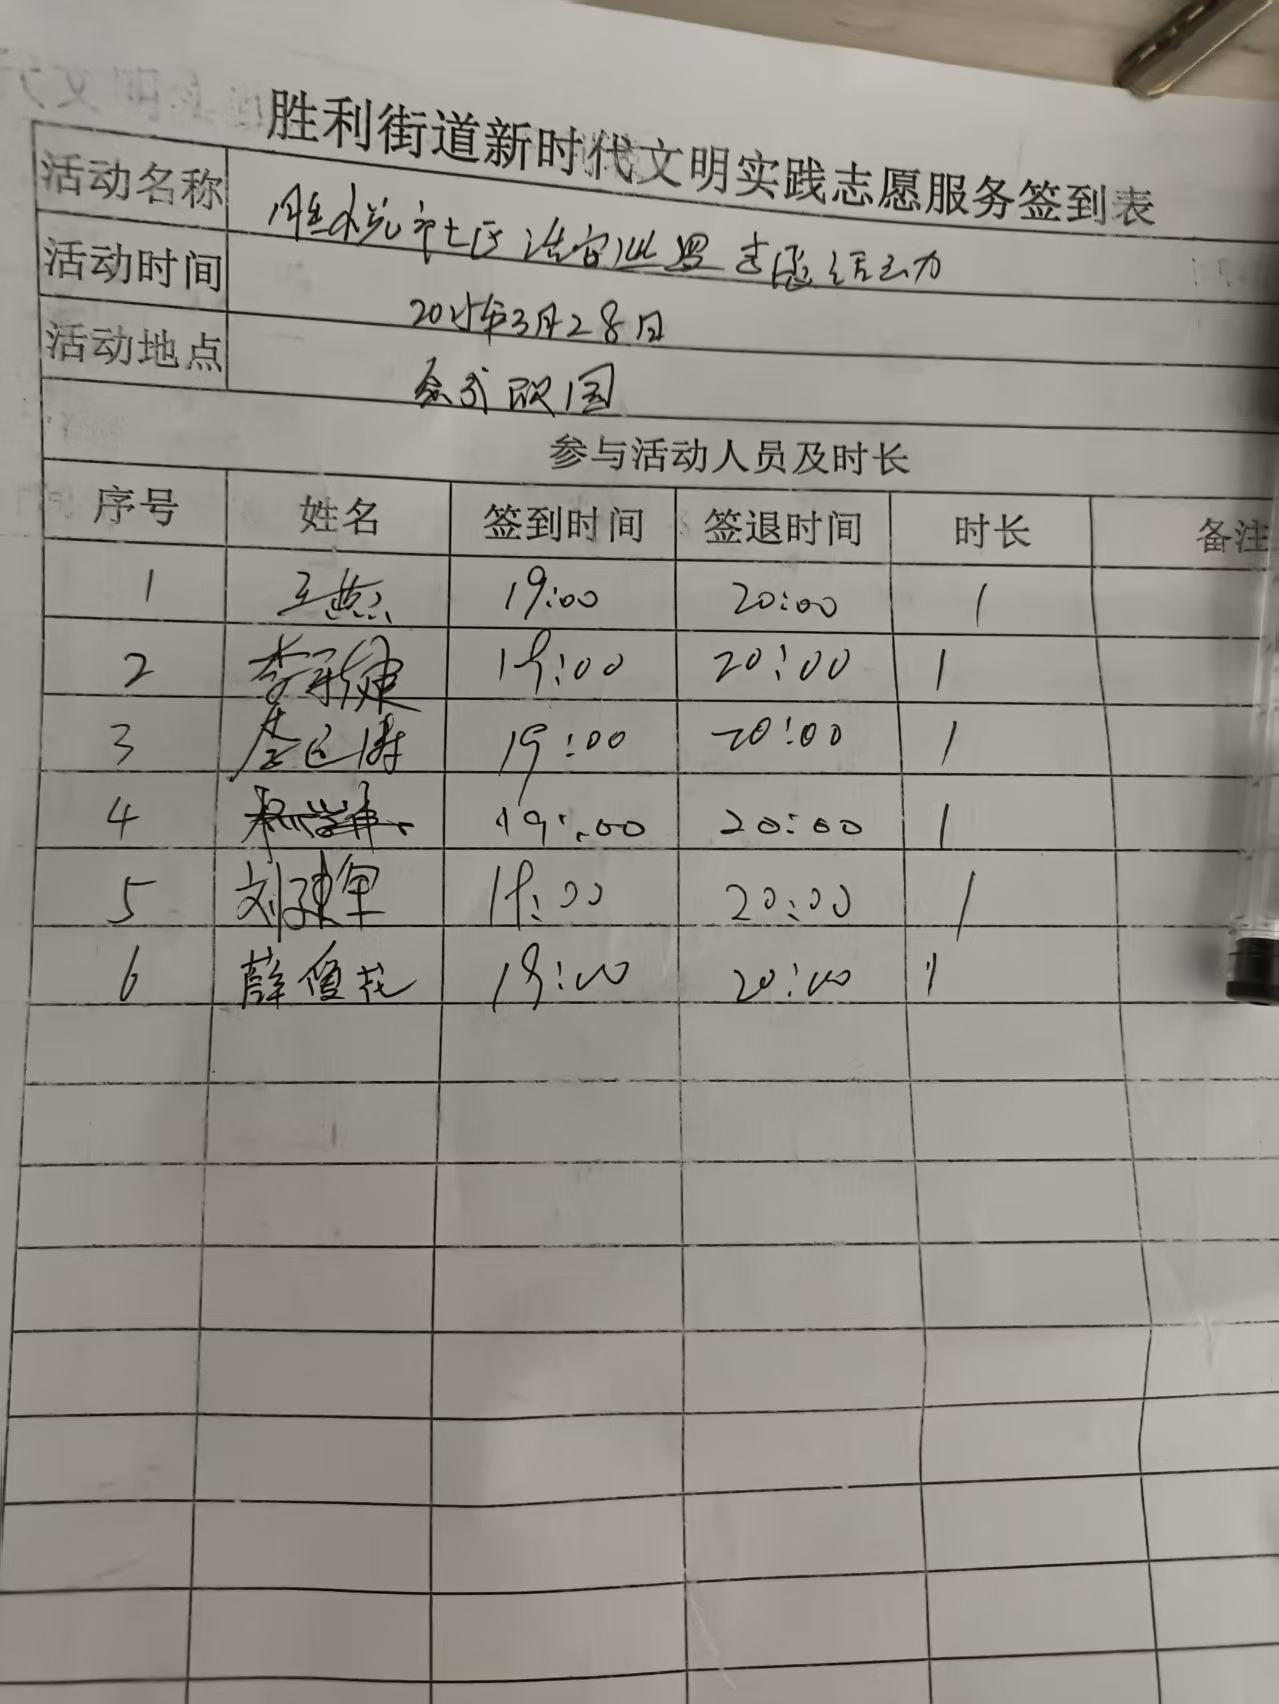 胜利街道新时代文明实践志愿服务签到表
活动名称
活动时间 2025年3月28日
活动地点
参与活动人员及时长
序号 姓名 签到时间 签退时间 时长 备注
1 王燕 19:00 20:00 1
2 李新建 19:00 20:00 1
3 19:00 20:00 1
4 19:00 20:00 1
5 刘建军 19:00 20:00 1
6 薛俊花 19:00 20:00 1